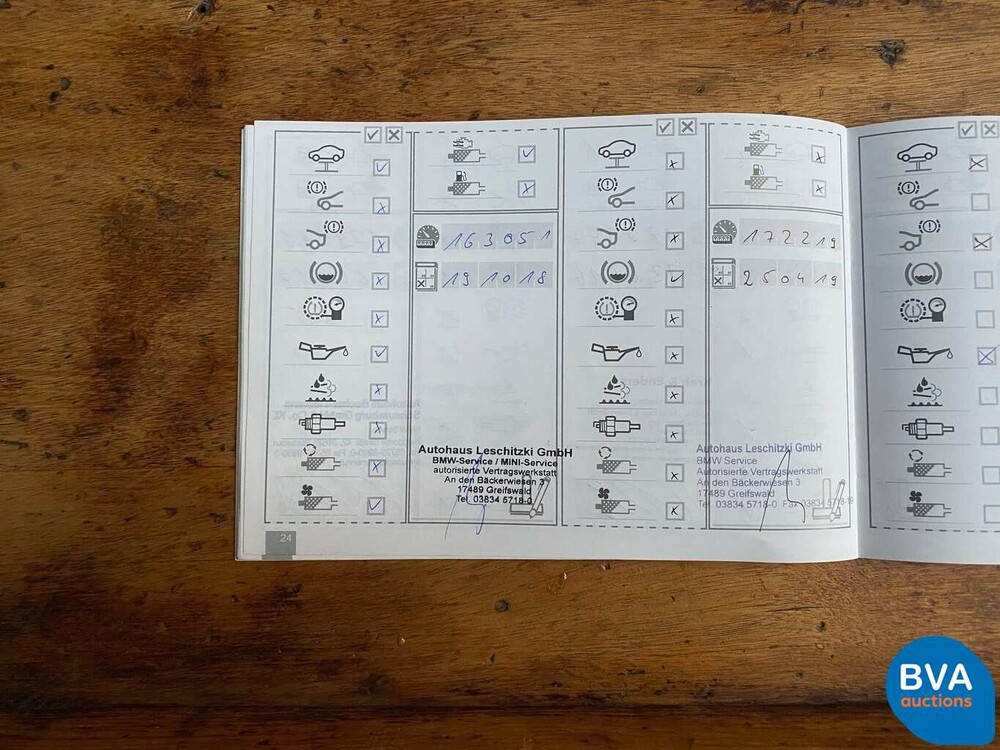 163051
191018
Autohaus Leschitzki GmbH
BMW-Service / MINI-Service
autorisierte Vertragswerkstatt
An den Bäckerwiesen 3
17489 Greifswald
Tel. 03834 5718-0
24
172219
250419
Autohaus Leschitzki GmbH
BMW Service
Autorisierte Vertragswerkstatt
An den Bäckerwiesen 3
17489 Greifswald
Tel. 03834 5718-0 Fax 03834 5718-18
BVA
auctions